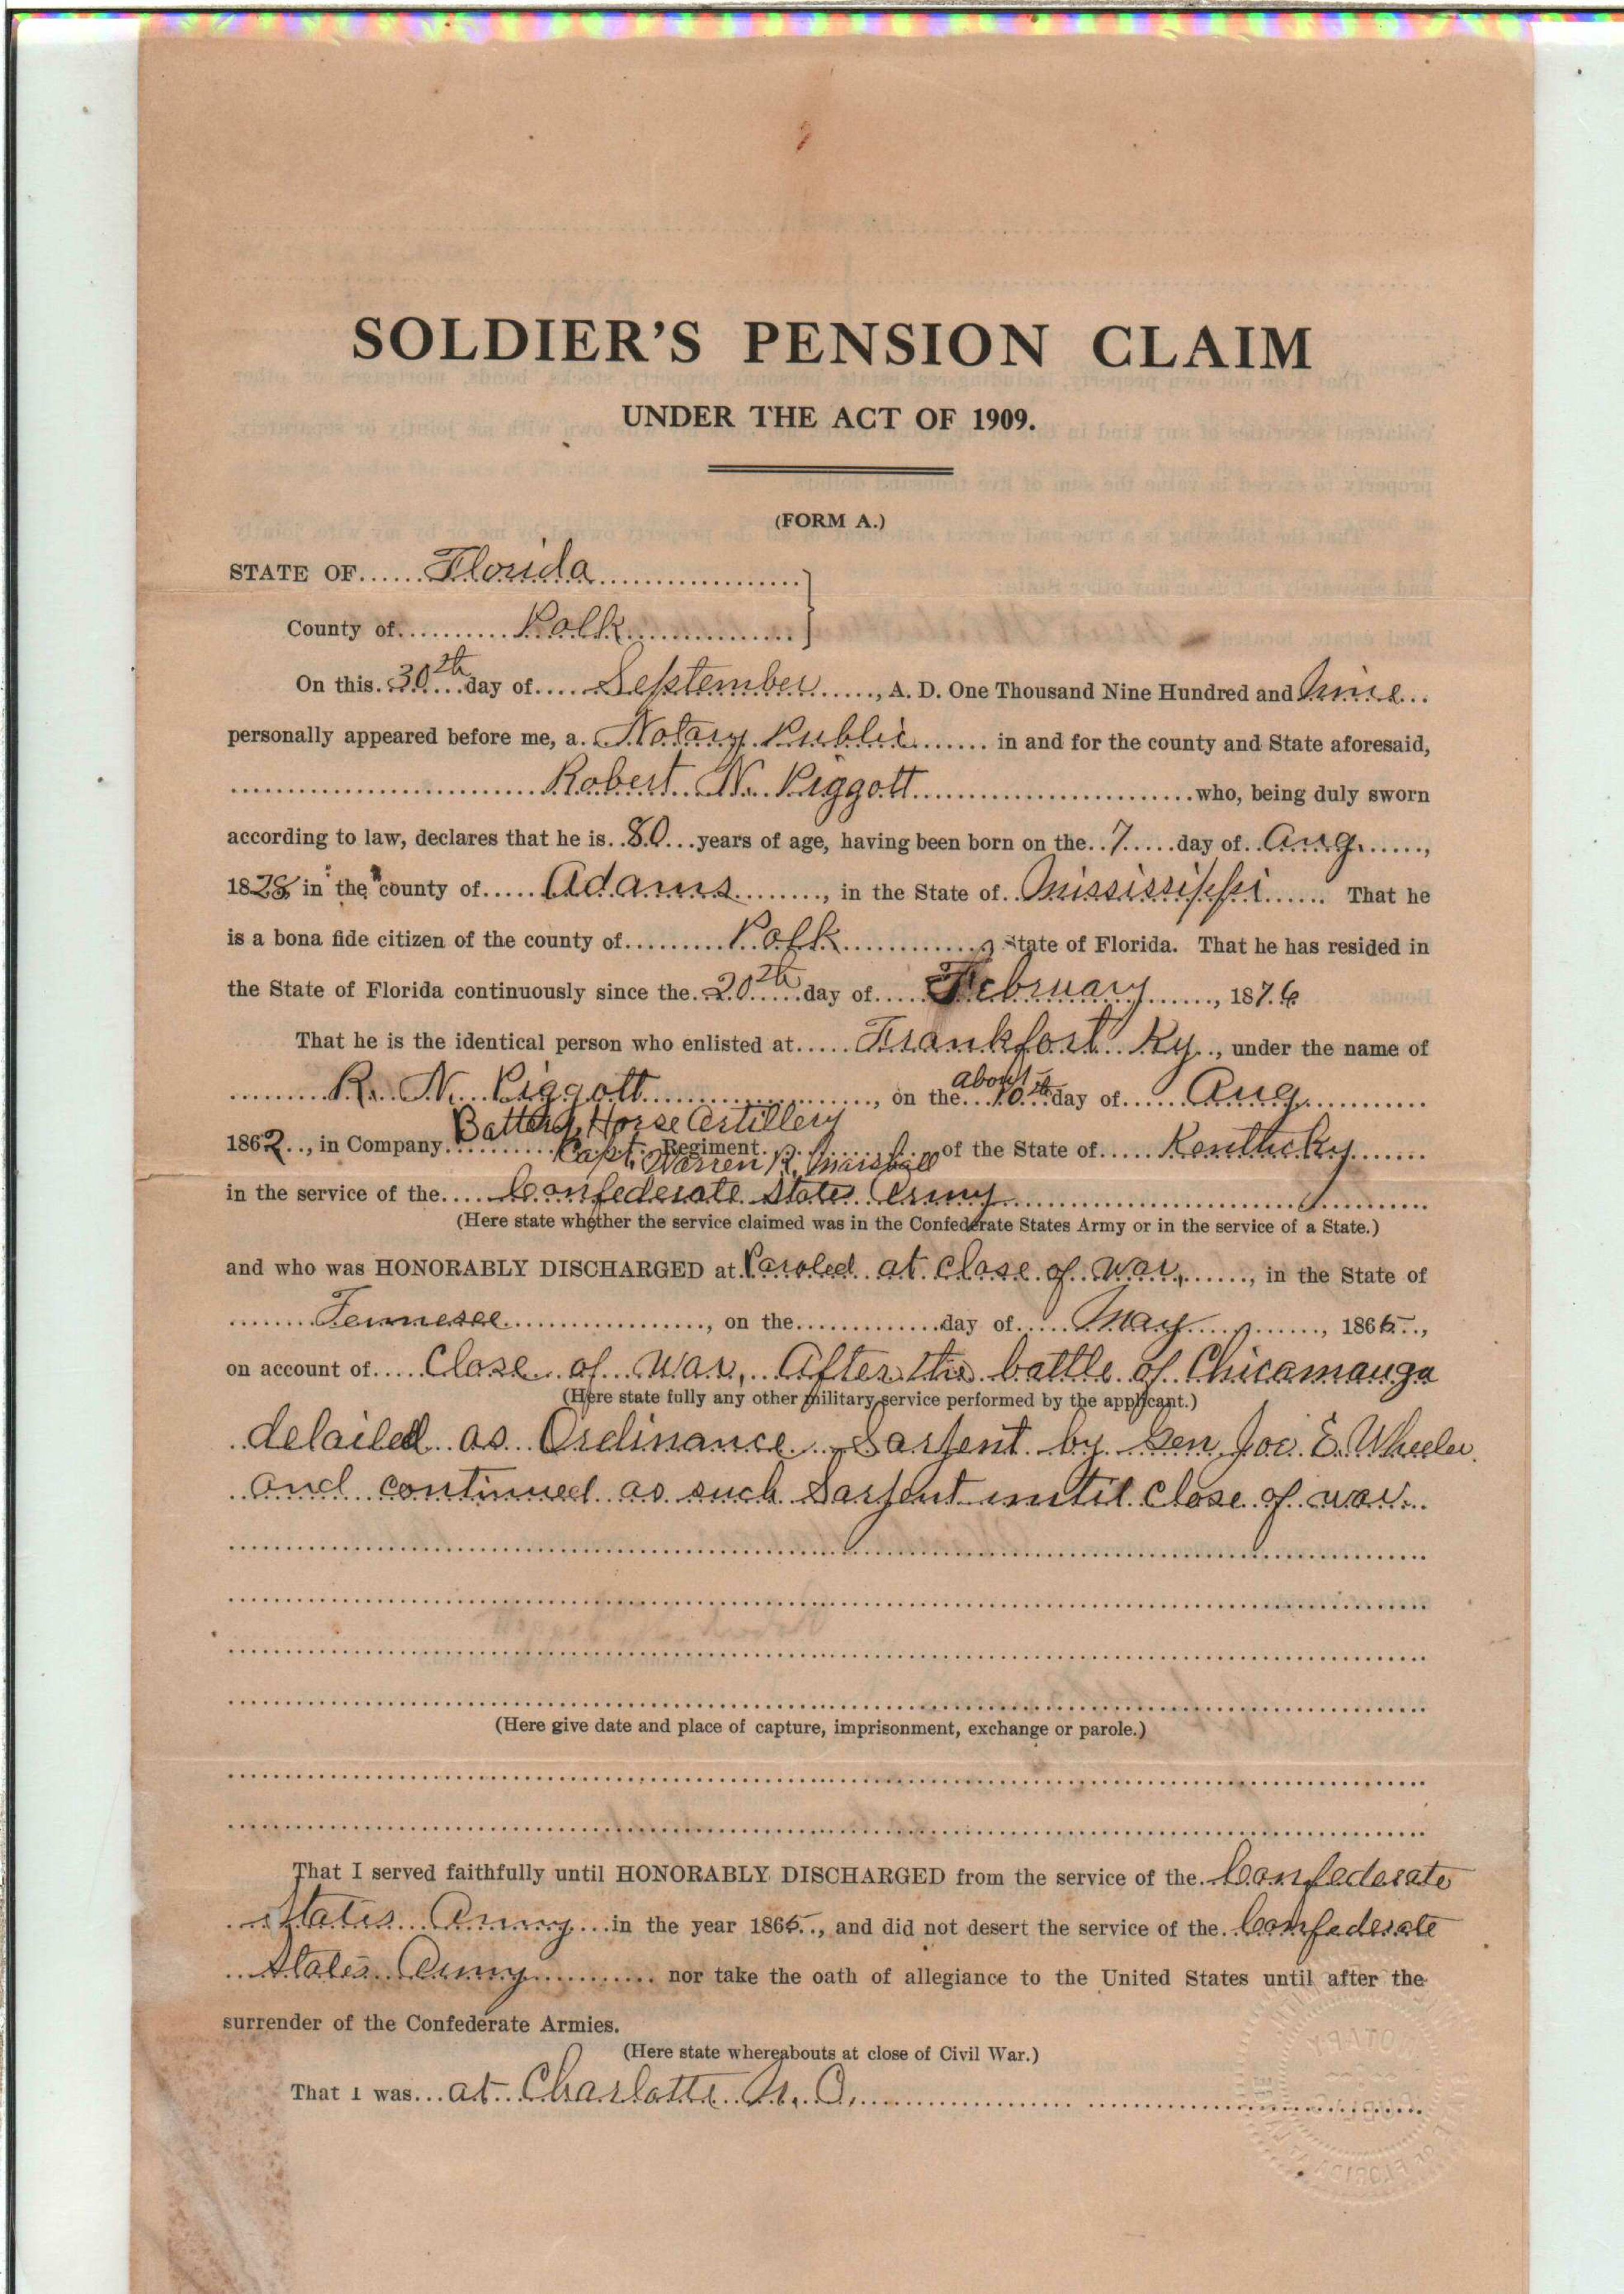 SOLDIER'S PENSION CLAIM
UNDER THE ACT OF 1909.
(FORM A.)
STATE OF Florida
County of Polk
On this 30th day of September, A. D. One Thousand Nine Hundred and Nine
personally appeared before me, a Notary Public in and for the county and State aforesaid,
Robert N. Piggott who, being duly sworn
according to law, declares that he is 80 years of age, having been born on the 7 day of Aug,
1828 in the county of Adams, in the State of Mississippi That he
is a bona fide citizen of the county of Polk, State of Florida. That he has resided in
the State of Florida continuously since the 20th day of February, 1876
That he is the identical person who enlisted at Frankfort Ky, under the name of
R. N. Piggott, on the about 10th day of Aug
1862, in Company Battery Horse Artillery Capt. Warren R. Marshall Regiment of the State of Kentucky
in the service of the Confederate States Army
(Here state whether the service claimed was in the Confederate States Army or in the service of a State.)
and who was HONORABLY DISCHARGED at Paroled at close of war, in the State of
Tennesee, on the day of May, 1865,
on account of Close of war, After the battle of Chicamauga
(Here state fully any other military service performed by the applicant.)
detailed as Ordinance Sarjent by Gen Joe E. Wheeler
and continued as such Sarjent until close of war.
(Here give date and place of capture, imprisonment, exchange or parole.)
That I served faithfully until HONORABLY DISCHARGED from the service of the Confederate
States Army in the year 1865, and did not desert the service of the Confederate
States Army nor take the oath of allegiance to the United States until after the
surrender of the Confederate Armies.
(Here state whereabouts at close of Civil War.)
That I was at Charlotte N. C.